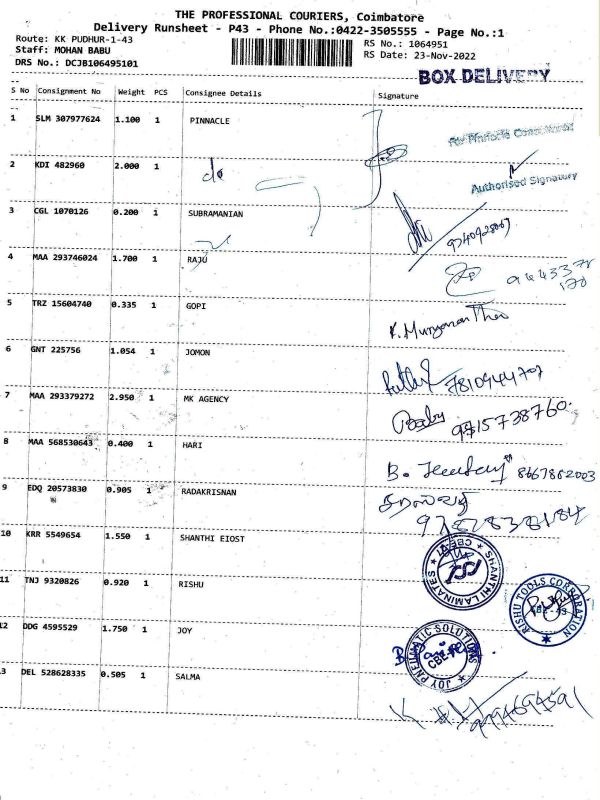 THE PROFESSIONAL COURIERS, Coimbatore
Delivery Runsheet - P43 - Phone No.:0422-3505555 - Page No.:1
Route: KK PUDHUR-1-43
RS No.: 1064951
Staff: MOHAN BABU
RS Date: 23-Nov-2022
DRS No.: DCJB106495101
BOX DELIVERY
S No Consignment No Weight PCS Consignee Details Signature
1 SLM 307977624 1.100 1 PINNACLE
2 KDI 482960 2.000 1 do
Authorised Signatory
3 CGL 1070126 0.200 1 SUBRAMANIAN
4 MAA 293746024 1.700 1 RAJU
5 TRZ 15604740 0.335 1 GOPI
6 GNT 225756 1.054 1 JOMON
7 MAA 293379272 2.950 1 MK AGENCY
8 MAA 568530643 0.400 1 HARI
8667862003
9 EDQ 20573830 0.905 1 RADAKRISNAN
10 KRR 5549654 1.550 1 SHANTHI EIOST
SHANTHI LAMINATES
11 TNJ 9320826 0.920 1 RISHU
RISHU TOOLS CORPORATION
12 DDG 4595529 1.750 1 JOY
JOY PNEUMATIC SOLUTIONS
3 DEL 528628335 0.505 1 SALMA